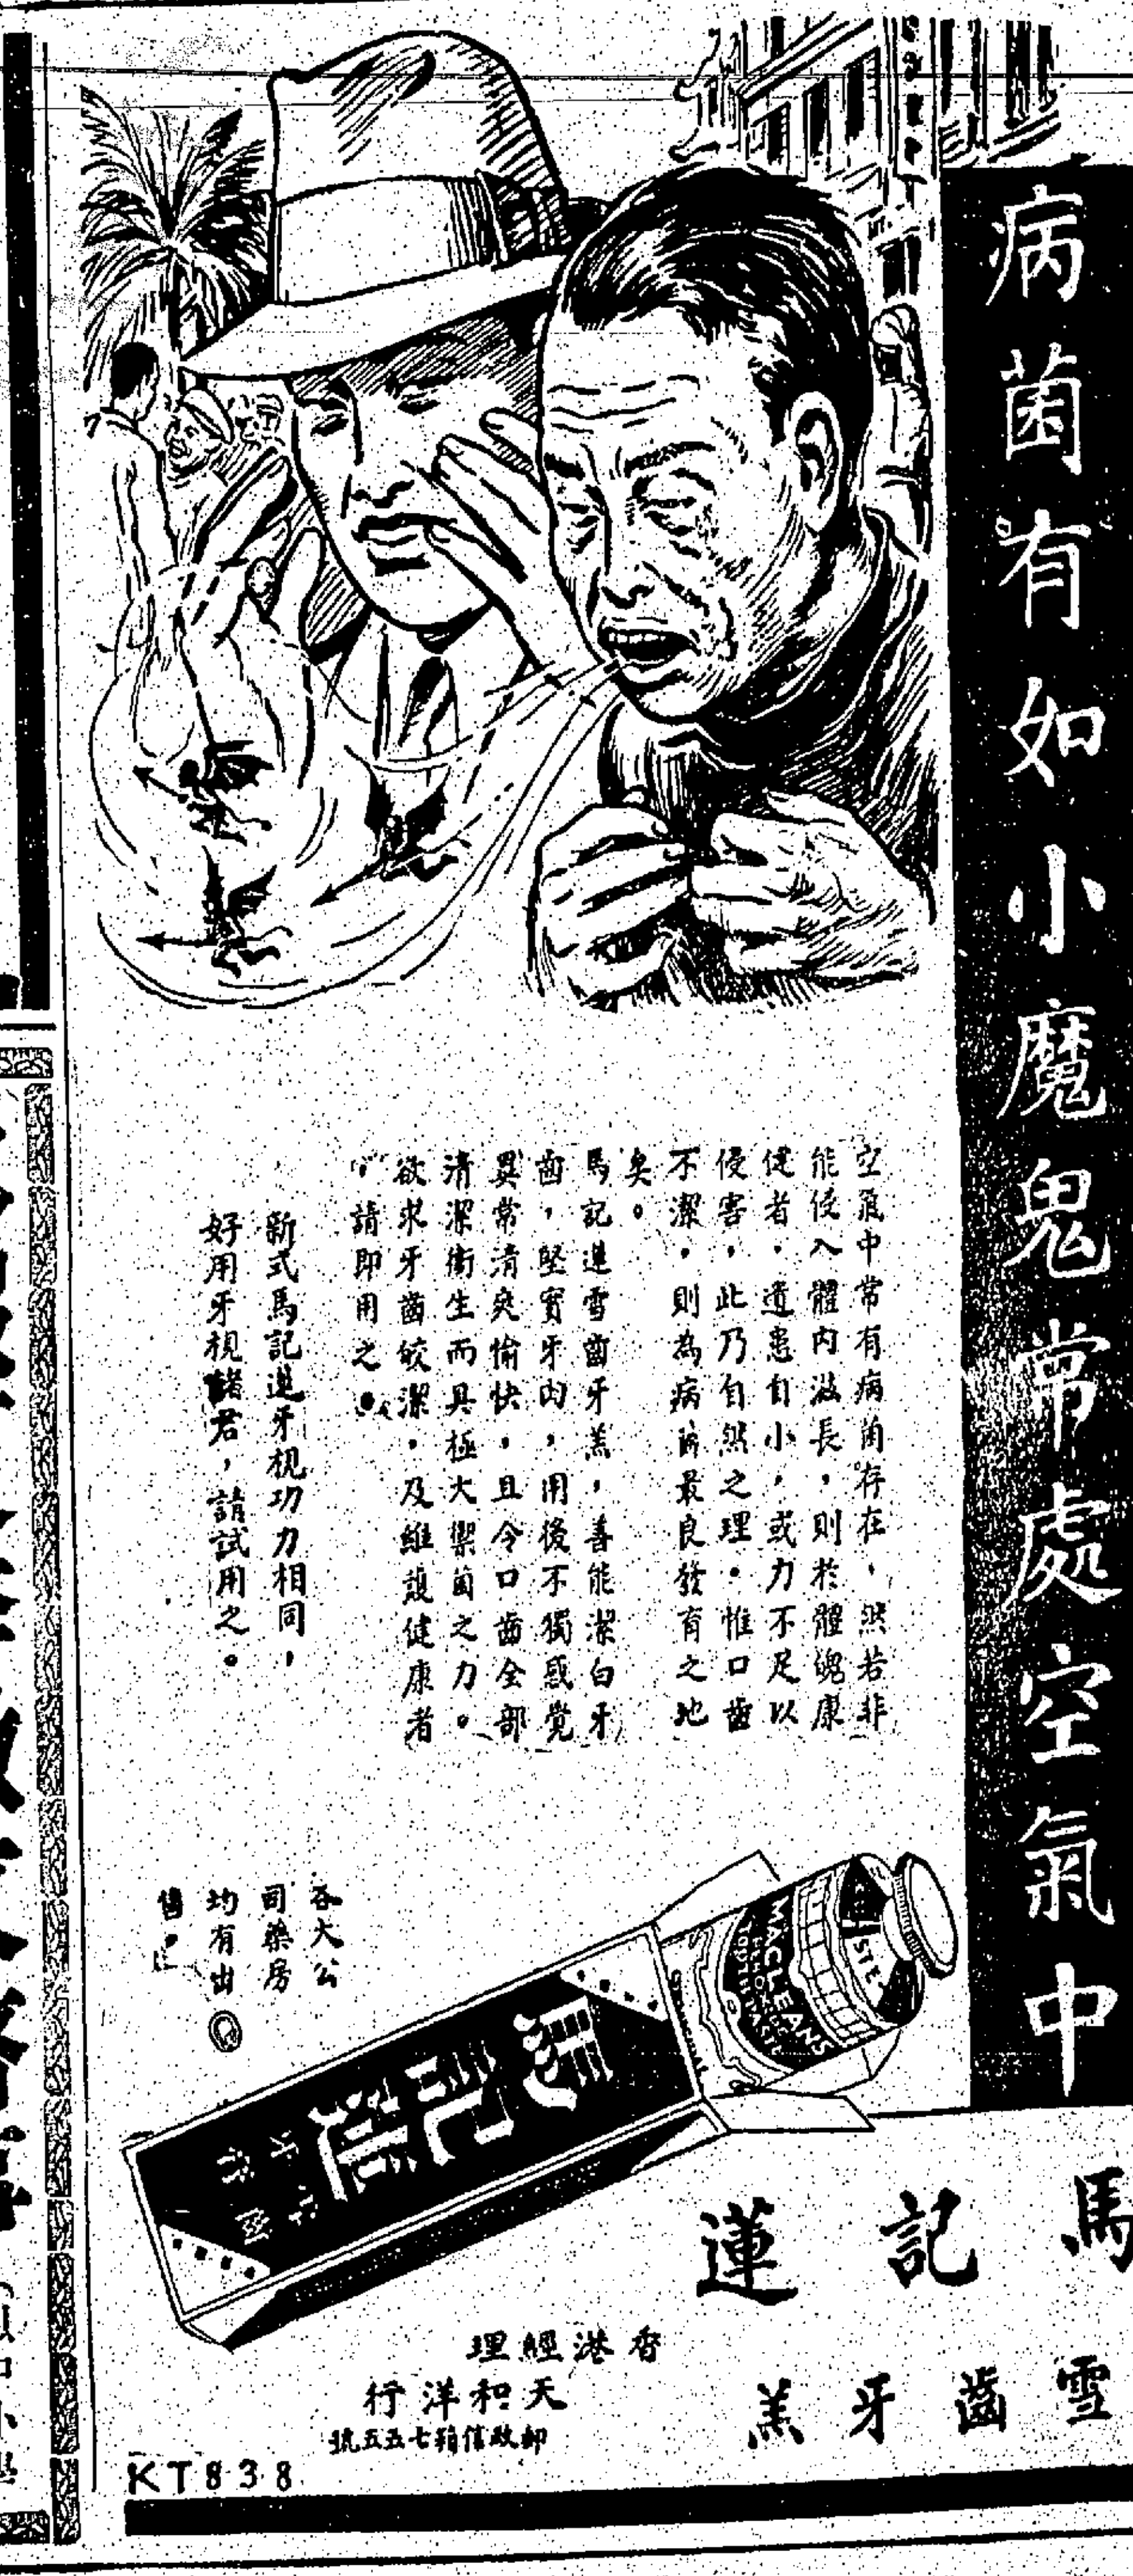 病菌有如小魔鬼常處空氣中
空氣中常有病菌存在，然若非
能侵入體內滋長，則於體魄康
健者，遺患自小，或力不足以
侵害，此乃自然之理。惟口齒
不潔，則為病菌最良發育之地
矣。
馬記蓮雪齒牙羔，善能潔白牙
齒，堅實牙肉，用後不獨感覺
異常清爽愉快，且令口齒全部
清潔衛生而具極大禦菌之力。
欲求牙齒皎潔，及維護健康者
，請即用之。
新式馬記蓮牙梘功力相同，
好用牙梘諸君，請試用之。
各大公
司藥房
均有出
售
MACLEANS
PEROXIDE
TOOTH PASTE
馬記蓮
馬記蓮
雪齒牙羔
香港經理
天和洋行
郵政信箱七五五號
KT838